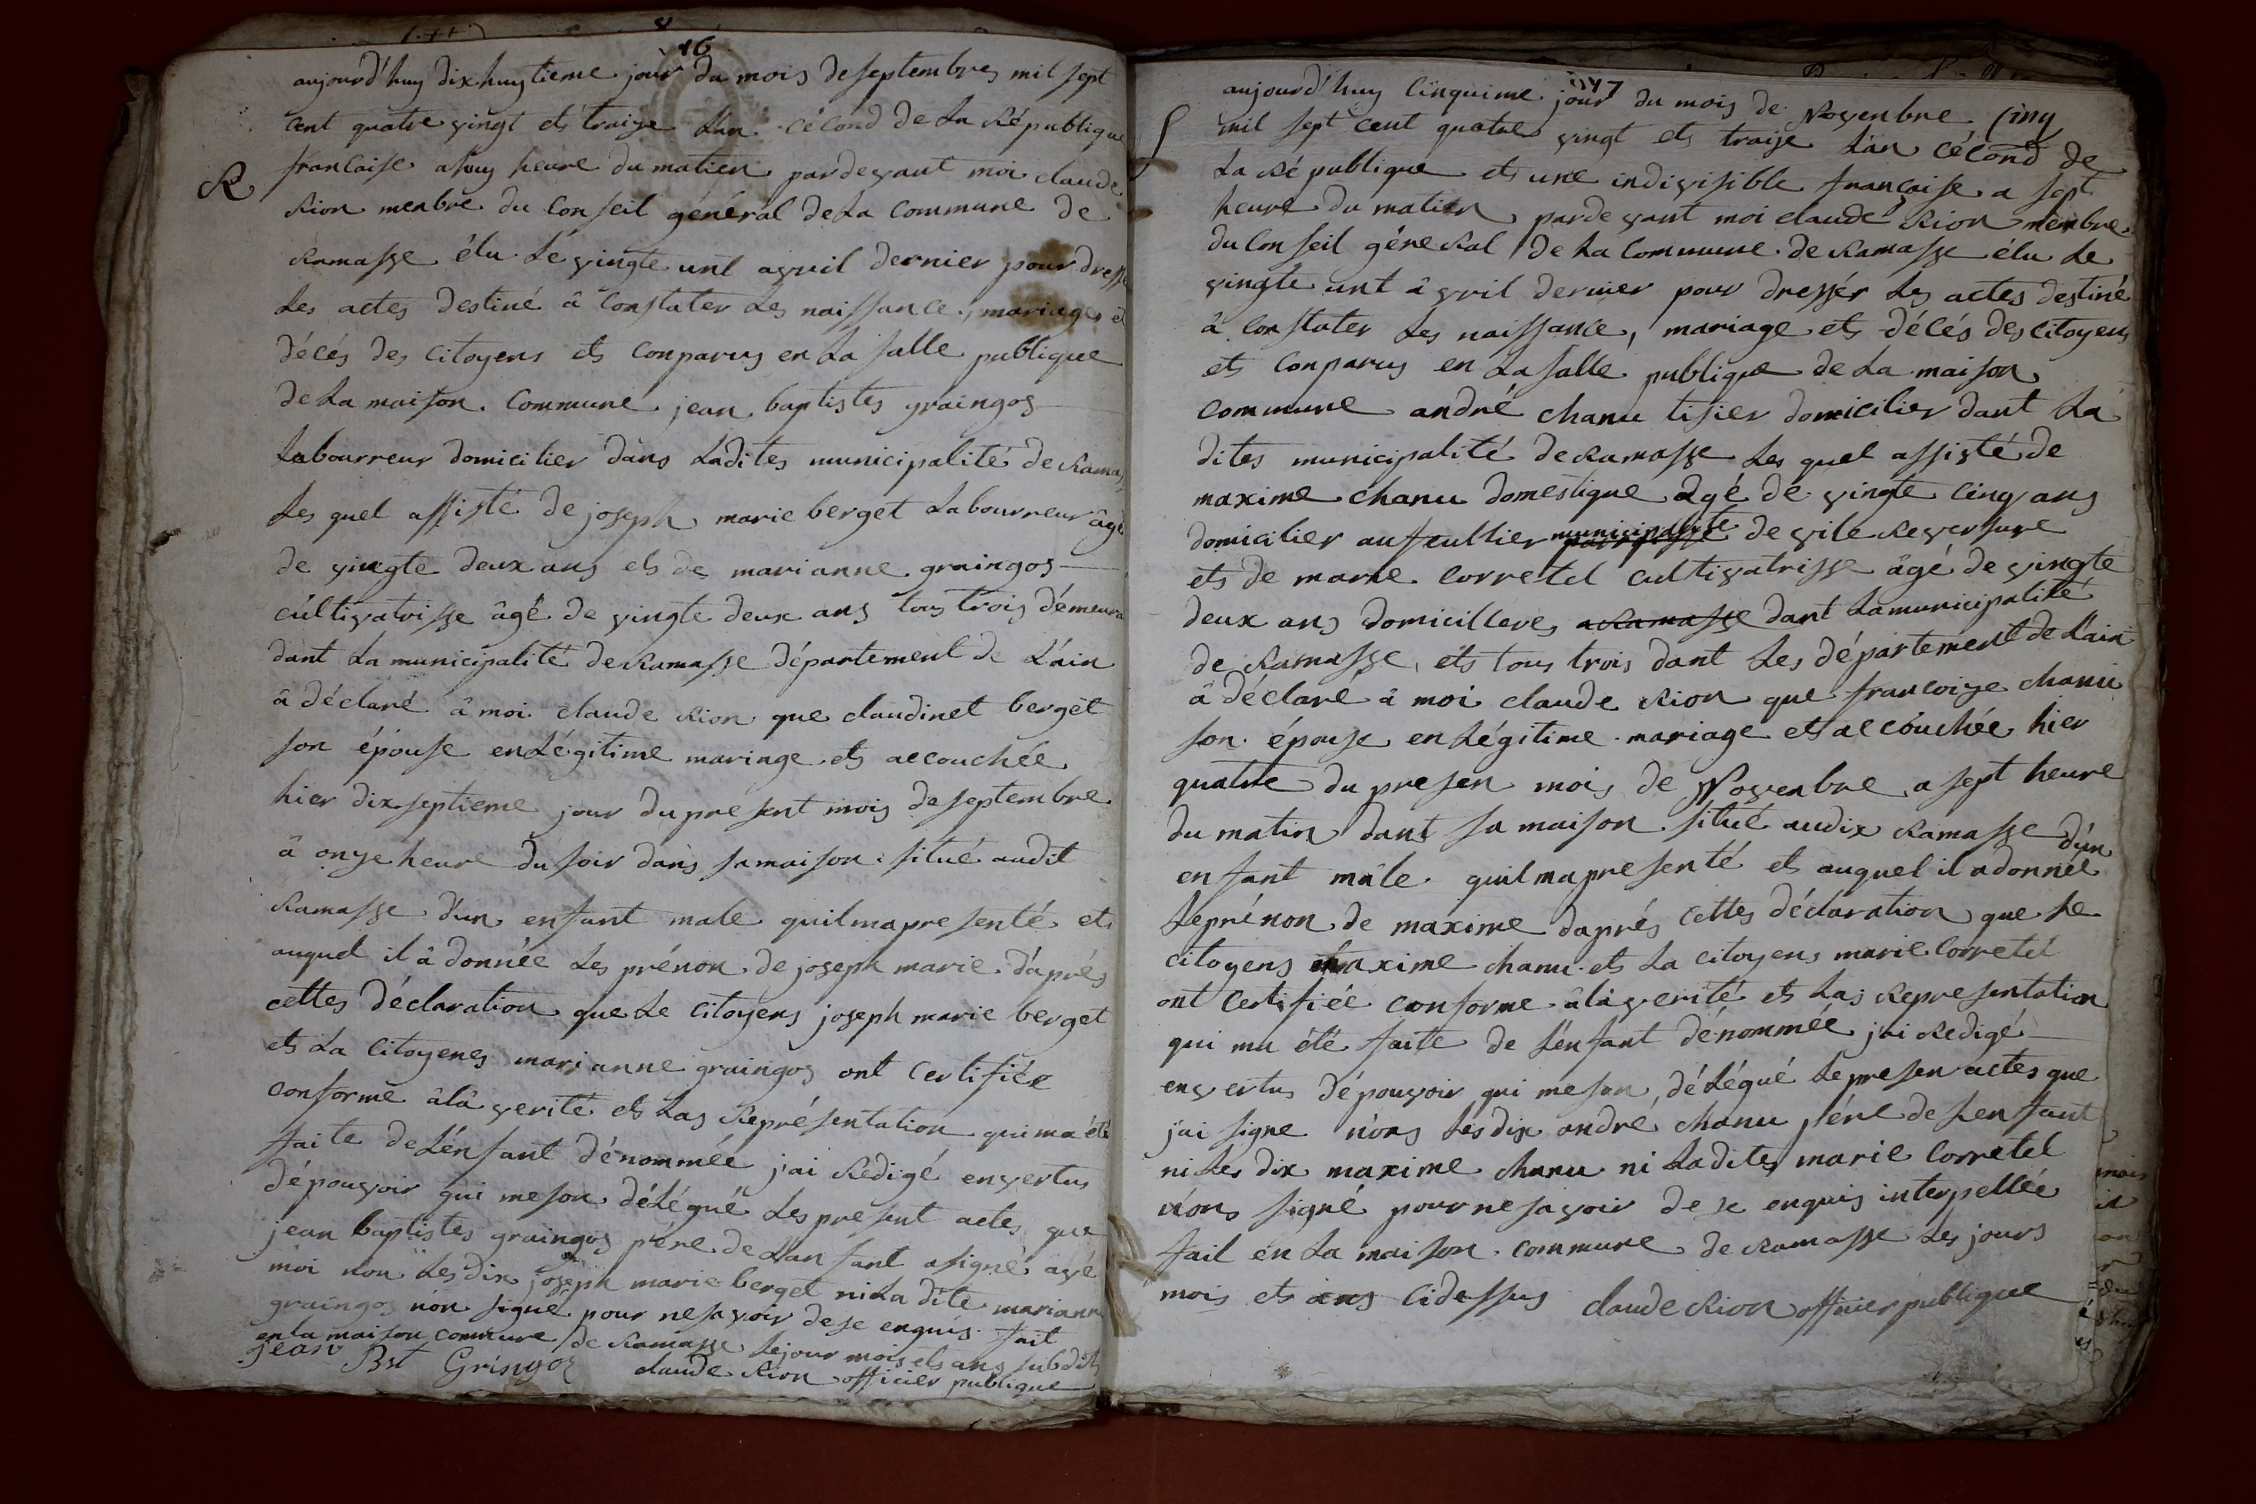 16
aujourd'huy dix huytieme jour du mois de septembres mil sept
cent quatre vingt ets traize L'an cécond de La République
francaise a huy heure du matien pardevant moi claude
R
Rion menbre du Conseil général de La Commune de
Ramasse élu Le vingte unt avril dernier pour dresse
Les actes destiné â constater Les naissance, mariages et
décés des citoyens ets conparus en La salle publique
de La maison Commune jean baptistes graingos
Labourreur domicilier dans Ladites municipalité de Ramas
Les quel assisté de joseph marie berget Labourreur âgé
de vingte deux ans ets de marianne graingos
cultivatrisse âgé de vingte deux ans tous trois démeura
dant La municipalité de Ramasse département de L'ain
â déclaré â moi claude Rion que claudinet berget
son épouse en Légitime mariage ets accouchée
hier dix septieme jour du present mois de septembre
â onze heure du soir dans sa maison situé audit
Ramasse d'un enfant male quil ma presenté ets
auquel il â donnée Les prénon de joseph marie d'aprés
cettes déclaration que Le citoyens joseph marie berget
ets La citoyenes marianne graingos ont certifiée
conforme âlâ verité ets Las Représentation qui ma été
faite de L'énfant dénommée j'ai Rédigé envertus
dépouvoir qui me son déLégué Les present actes que
jean baptistes graingos pére de L'an fant a signé avé
moi non Les dix joseph marie berget ni La dite mariann
graingos n'on signé pour ne savoir de se enquis fait
en La maison commune de Ramasse Le jour mois ets ans subdit
jean Bst Gringoz claude Rion officier publique
17
aujourd'huy Cinquime jour du mois de Novenbre Cinq
mil sept cent quatre vingt ets traize L'an cécond de
La République ets une indivisible française a sept
heure du matien pardevant moi claude Rion menbre
du Conseil géneral de La Commune de Ramasse élu Le
vingte unt âvril dernier pour dressér Les actes destiné
â constater Les naissance, mariage ets décés des citoyens
ets conparus en La salle publique de La maison
commune andré chanu tisier domicilier dant La
dites municipalité de Ramasse Les quel assisté de
maxime chanu domestique agé de vingte cinq ans
domicilier au feullier municipalité de vile Reversure
ets de marie corretel cultivatrisse âgé de vingte
deux ans domicilleres a Ramasse dant La municipalité
de Ramasse, ets tous trois dant Les département de L'ain
â déclaré â moi claude Rion que francoize chanu
son épouse en Légitime mariage ets accouchée hier
quatre du presen mois de Novenbre a sept heure
du matin dant sa maison situé audix Ramasse d'un
enfant mâle quil ma presenté ets auquel il a donnée
Le prénon de maxime daprés cettes déclaration que Le
citoyens maxime chanu ets La citoyens marie corretel
ont certifiée conforme âlâ verité ets Las Representation
qui ma été faite de L'énfant dénommée j'ai Redigé
envertus dépouvoir qui me son déLégué Le presen actes que
j'ai signe n'ons Les dix andré chanu pére de Lenfant
ni Les dix maxime chanu ni Ladites marie corretel
n'ons signé pour ne savoir de se enquis interpellée
fait en La maison commune de Ramasse Les jours
mois ets ans cidessus claude Rion officier publique